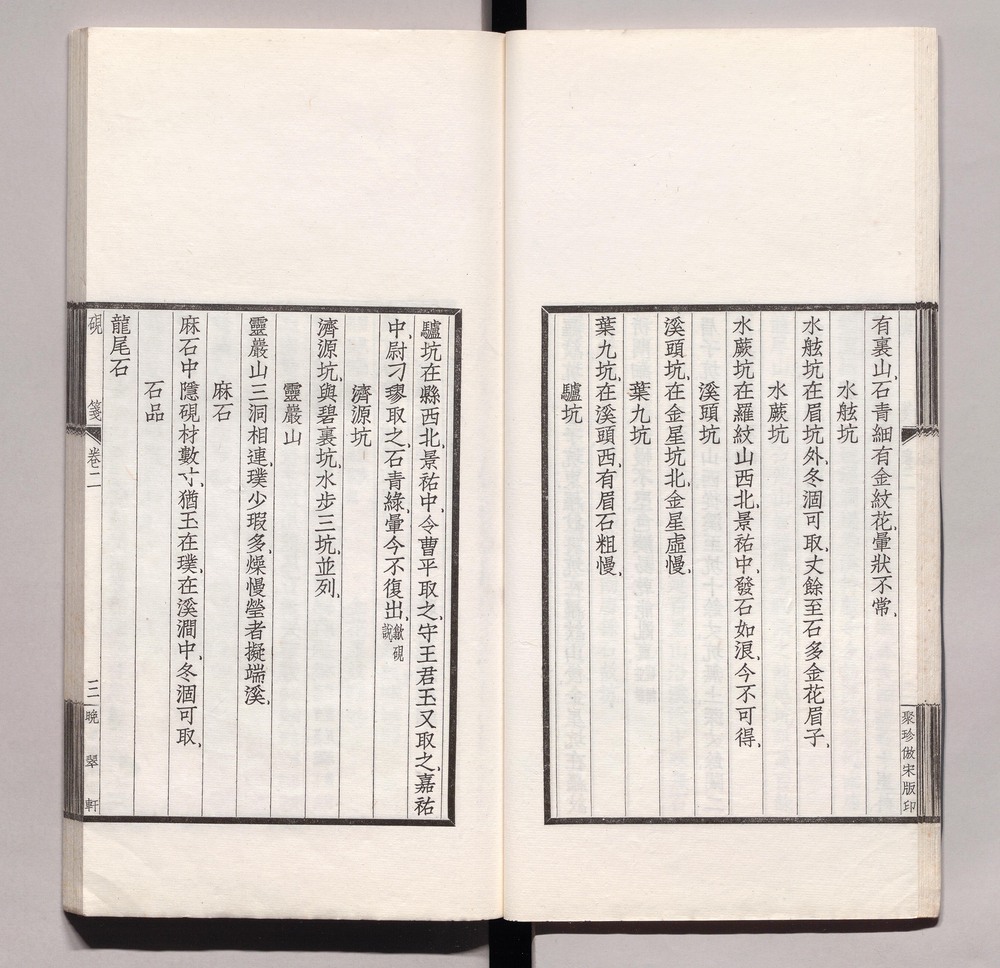 有裏山、石青細有金紋花、暈狀不常、
水舷坑
水舷坑在眉坑外、冬涸可取、丈餘至石多金花眉子、
水蕨坑
水蕨坑在羅紋山西北、景祐中、發石如浪、今不可得、
溪頭坑
溪頭坑、在金星坑北、金星虛慢、
葉九坑
葉九坑、在溪頭西、有眉石粗慢、
驢坑
聚珍倣宋版印
驢坑在縣西北、景祐中、令曹平取之、守王君玉又取之、嘉祐
中、尉刁璆取之、石青綠、暈今不復出、歙硯說
濟源坑
濟源坑、與碧裏坑、水步三坑、並列、
靈巖山
靈巖山三洞相連、璞少瑕多、燥慢瑩者擬端溪、
麻石
麻石中隱硯材數寸、猶玉在璞、在溪澗中、冬涸可取、
石品
龍尾石
硯箋 卷二 三 晚翠軒